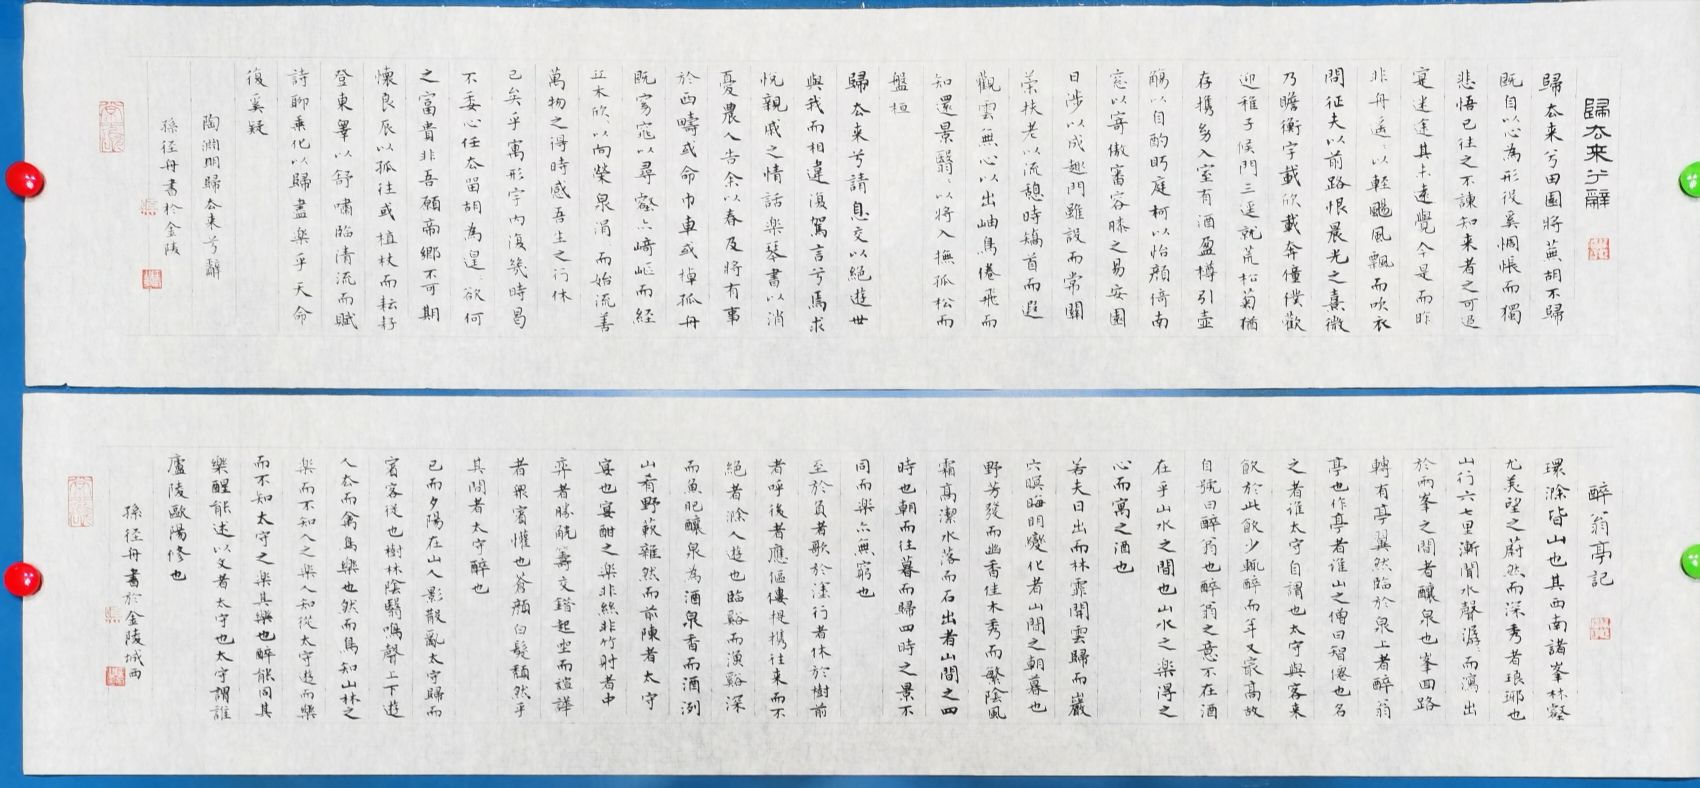 歸去來兮辭
歸去来兮田園將蕪胡不歸
既自以心為形役奚惆悵而獨
悲悟已往之不諫知来者之可追
寔迷途其未遠覺今是而昨
非舟遙々以輕颺風飄而吹衣
問征夫以前路恨晨光之熹微
乃瞻衡宇載欣載奔僮僕歡
迎稚子候門三逕就荒松菊猶
存攜幼入室有酒盈樽引壺
觴以自酌眄庭柯以怡顏倚南
窓以寄傲審容膝之易安園
日涉以成趣門雖設而常關
策扶老以流憩時矯首而遐
觀雲無心以出岫鳥倦飛而
知還景翳々以將入撫孤松而
盤桓
歸去来兮請息交以絕遊世
與我而相違復駕言兮焉求
悅親戚之情話楽琴書以消
憂農人告余以春及將有事
於西疇或命巾車或棹孤舟
既窈窕以尋壑亦崎嶇而経
丘木欣々以向榮泉涓々而始流善
萬物之得時感吾生之行休
已矣乎寓形宇內復幾時曷
不委心任去留胡為遑欲何
之富貴非吾願帝鄉不可期
懷良辰以孤往或植杖而耘耔
登東皋以舒嘯臨清流而賦
詩聊乗化以歸盡楽乎天命
復奚疑
陶淵明歸去来兮辭
孫径舟書於金陵
醉翁亭記
環滁皆山也其西南諸峯林壑
尤美望之蔚然而深秀者琅琊也
山行六七里漸聞水聲潺々而瀉出
於兩峯之間者釀泉也峯回路
轉有亭翼然臨於泉上者醉翁
亭也作亭者誰山之僧曰智僊也名
之者誰太守自謂也太守與客来
飲於此飲少輒醉而年又最高故
自號曰醉翁也醉翁之意不在酒
在乎山水之間也山水之楽得之
心而寓之酒也
若夫日出而林霏開雲歸而巖
穴暝晦明變化者山間之朝暮也
野芳發而幽香佳木秀而繁陰風
霜高潔水落而石出者山間之四
時也朝而往暮而歸四時之景不
同而楽亦無窮也
至於負者歌於塗行者休於樹前
者呼後者應傴僂提攜往来而不
絕者滁人遊也臨谿而漁谿深
而魚肥釀泉為酒泉香而酒洌
山肴野蔌雜然而前陳者太守
宴也宴酣之楽非絲非竹射者中
弈者勝觥籌交錯起坐而諠譁
者衆賓懽也蒼顏白髮頹然乎
其間者太守醉也
已而夕陽在山人影散亂太守歸而
賓客從也樹林陰翳鳴聲上下遊
人去而禽鳥樂也然而鳥知山林之
楽而不知人之楽人知從太守遊而樂
而不知太守之楽其樂也醉能同其
樂醒能述以文者太守也太守謂誰
廬陵歐陽修也
孫径舟書於金陵城西